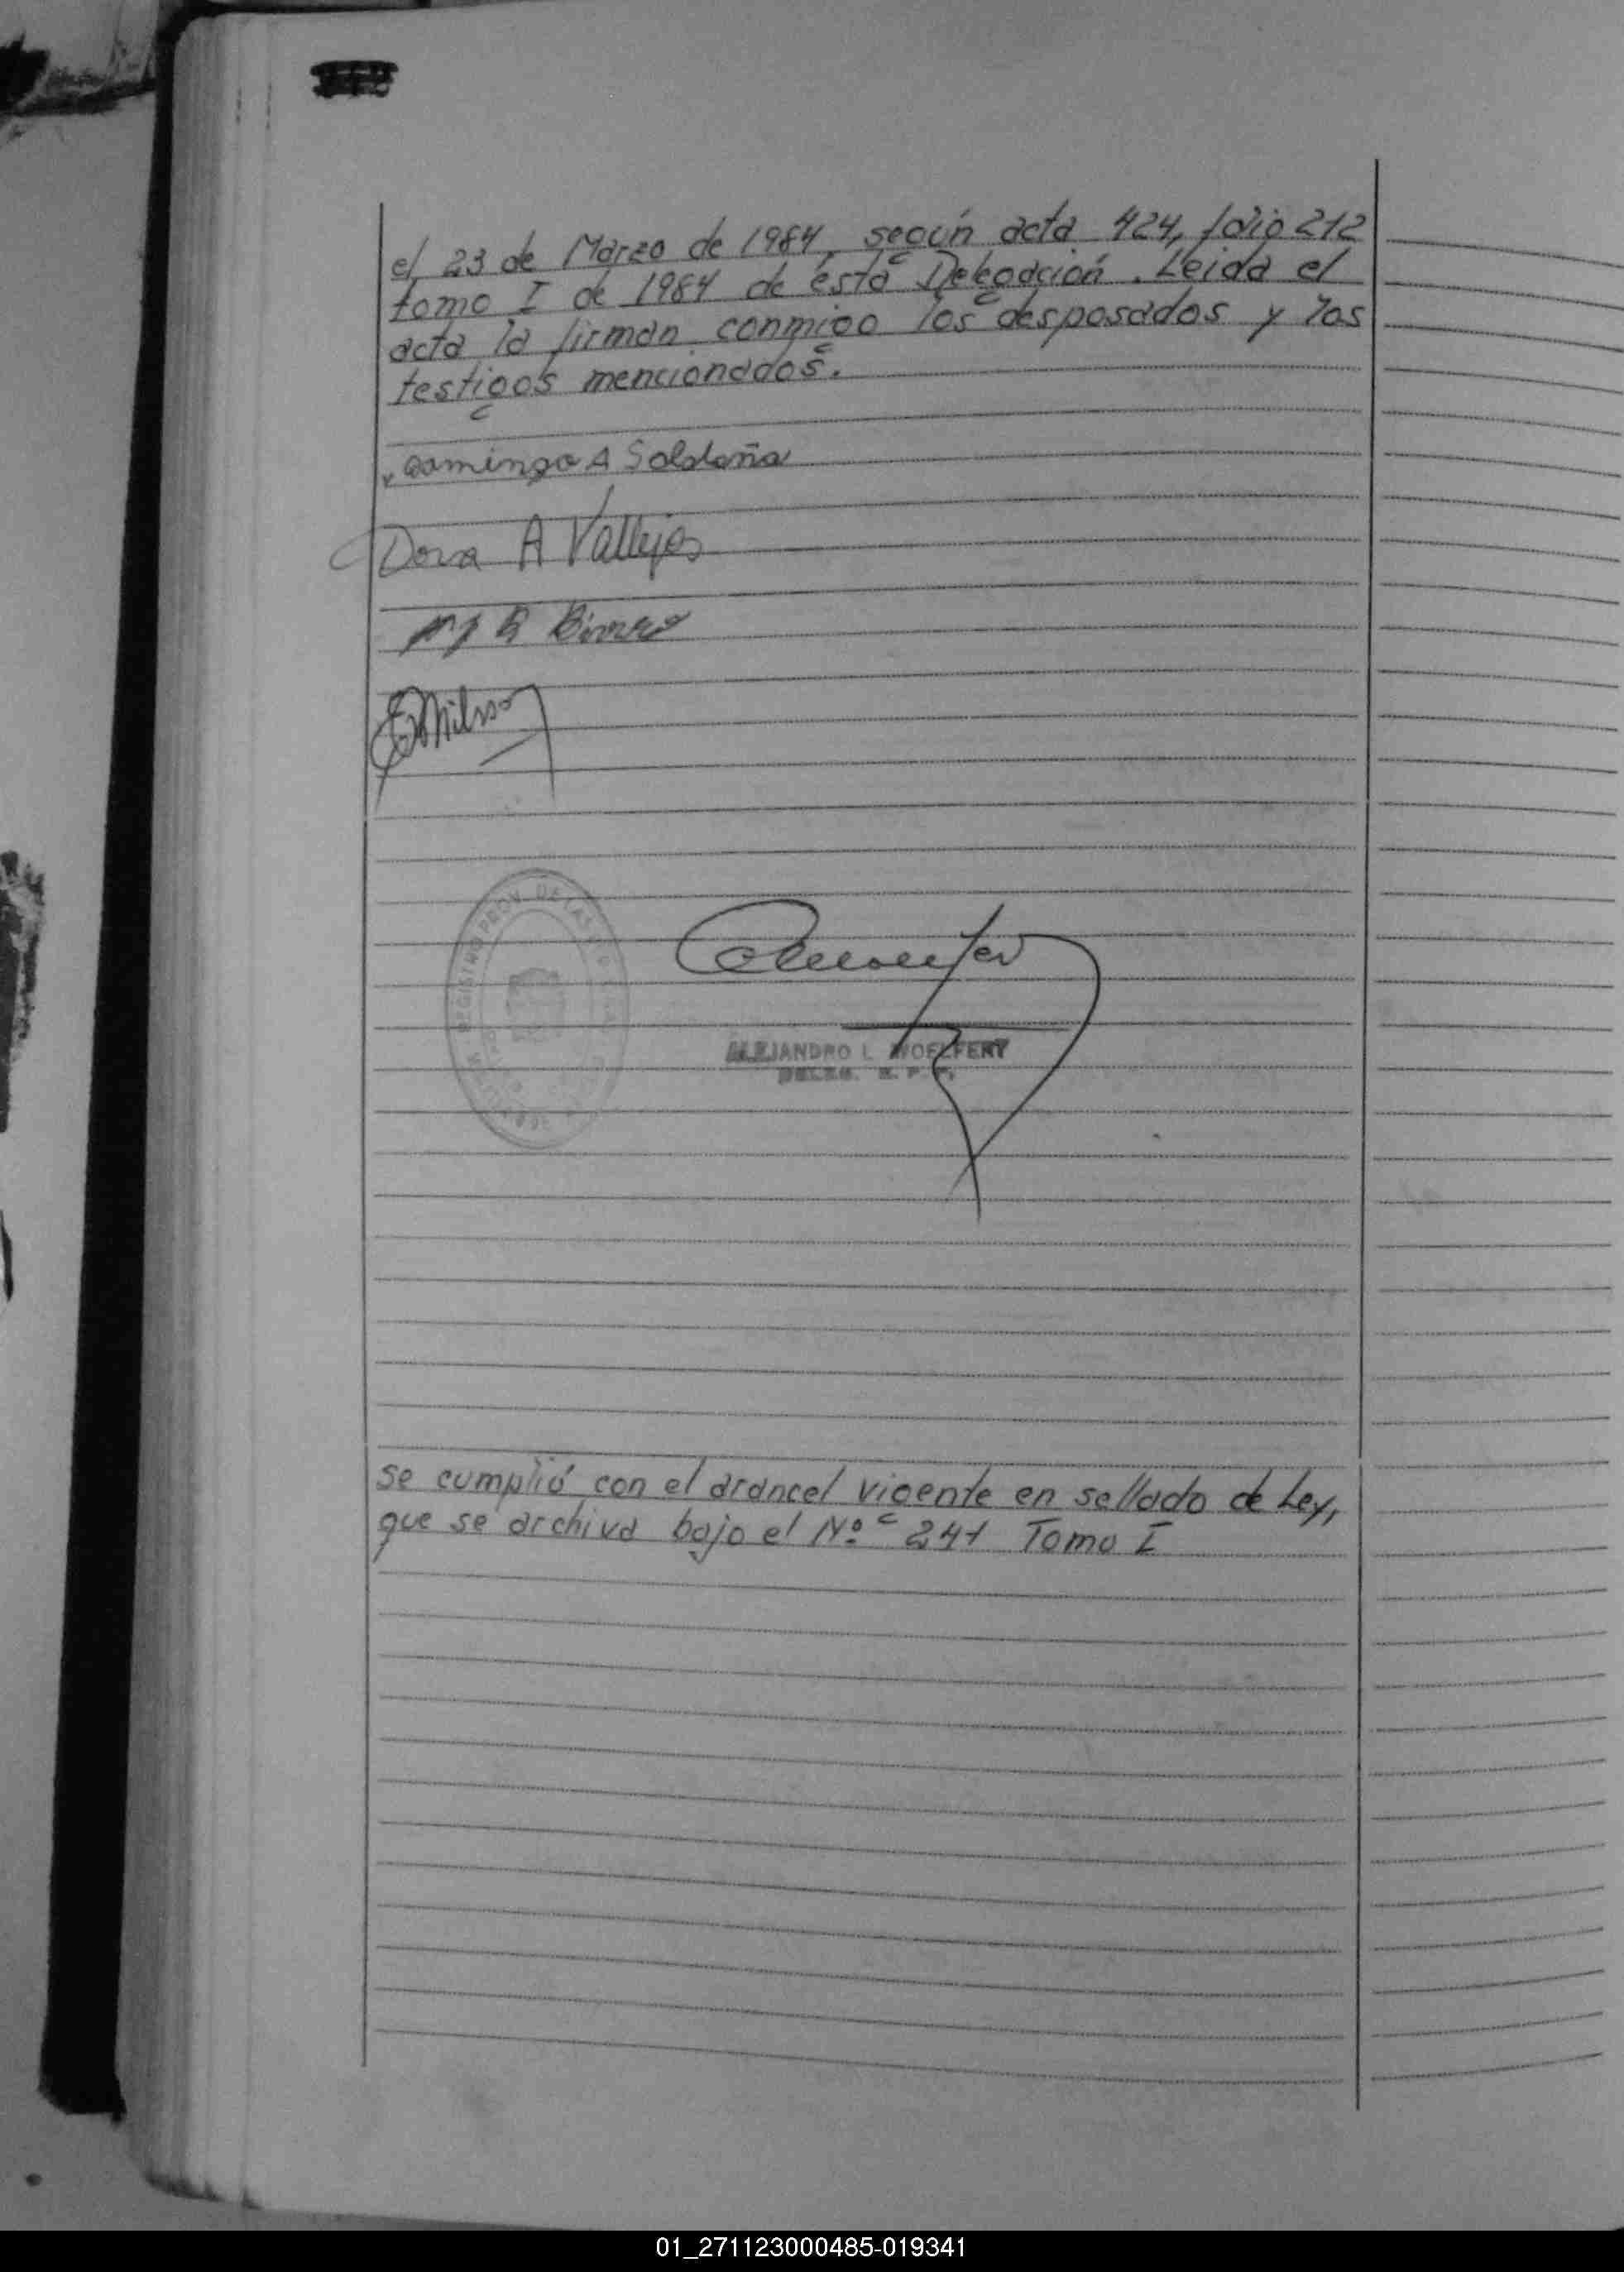 el 23 de Marzo de 1984, según acta 424, folio 212
tomo I de 1984 de ésta Delegación. Leida el
acta la firman conmigo los desposados y los
testigos mencionados.
Domingo A Saldaña
Dora A Vallejos
REGISTRO PROV. DE LAS
ALEJANDRO L WOELFERT
DELEG. R. P. P.
se cumplió con el arancel vigente en sellado de Ley,
que se archiva bajo el Nº 241 Tomo I
01_271123000485-019341